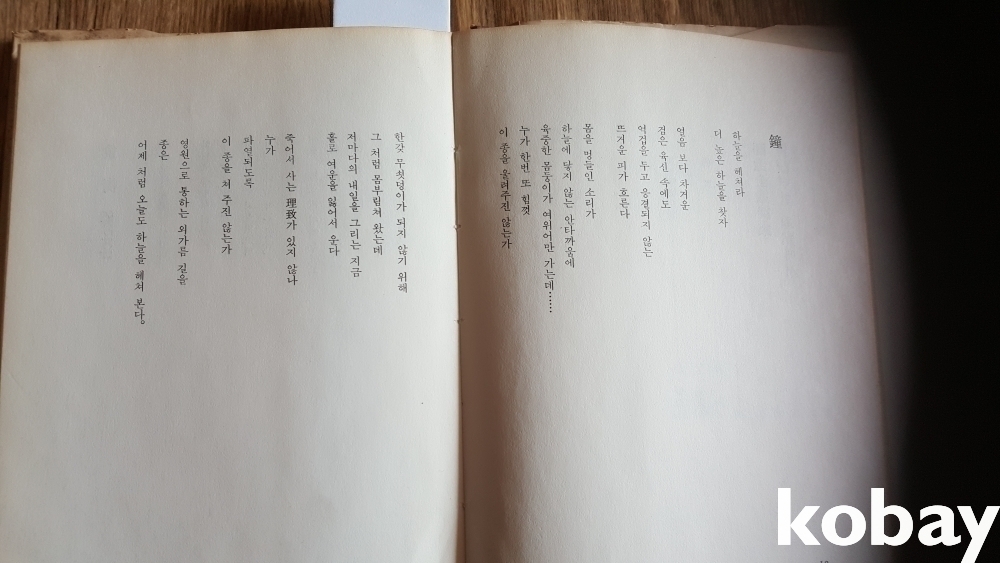 鐘
하늘을 헤쳐라
더 높은 하늘을 찾자
얼음 보다 차거운
검은 육신 속에도
억겁을 두고 응결되지 않는
뜨거운 피가 흐른다
몸을 멍들인 소리가
하늘에 닿지 않는 안타까움에
육중한 몸둥이가 여위어만 가는데……
누가 한번 또 힘껏
이 종을 울려주진 않는가
한갖 무쇳덩이가 되지 않기 위해
그 처럼 몸부림쳐 왔는데
저마다의 내일을 그리는 지금
홀로 여운을 잃어서 운다
죽어서 사는 理致가 있지 않나
누가
파열되도록
이 종을 쳐 주진 않는가
영원으로 통하는 외가름 길을
종은
어제 처럼 오늘도 하늘을 헤쳐 본다。
kobay